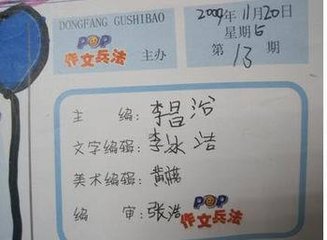 DONGFANG GUSHIBAO
POP
作文兵法 主办
2009年11月20日
星期五
第13期
主 编: 李昌浴
文字编辑: 李冰洁
美术编辑: 黄
编 审: 张浩
POP
作文兵法